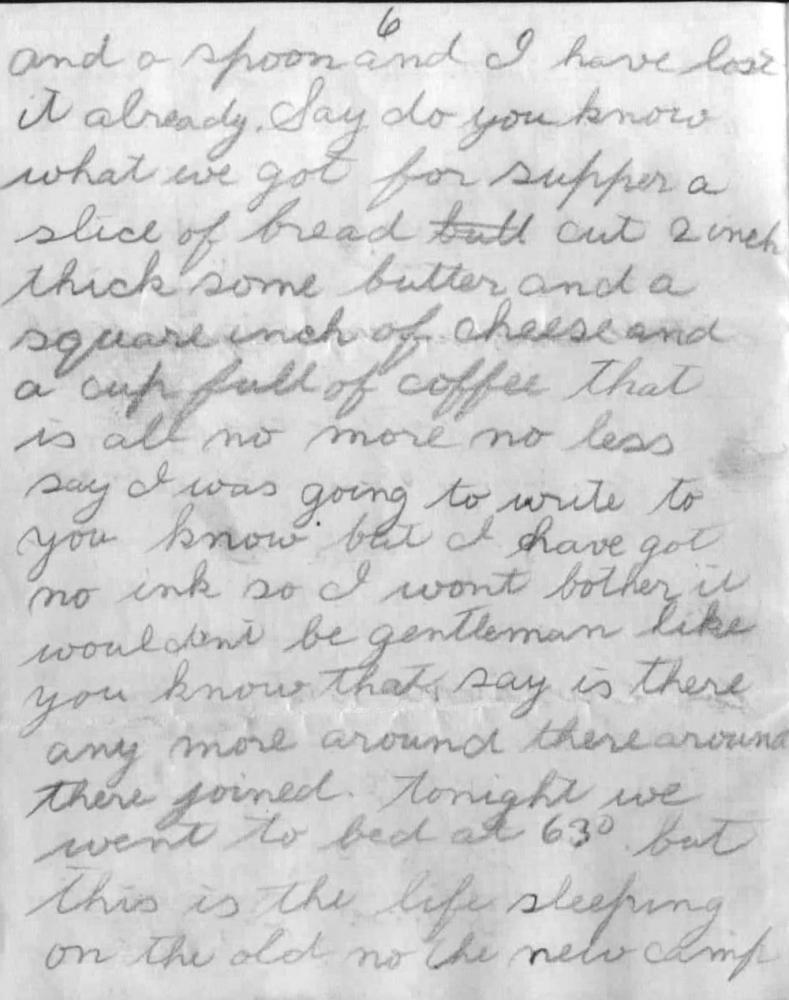 6
and a spoon and I have lost
it already. Say do you know
what we got for supper a
slice of bread butt cut 2 inch
thick some butter and a
square inch of cheese and
a cup full of coffee that
is all no more no less
say I was going to write to
you know but I have got
no ink so I wont bother it
wouldent be gentleman like
you know that. say is there
any more around there around
there joined. tonight we
went to bed at 630 but
this is the life sleeping
on the old no the new camp